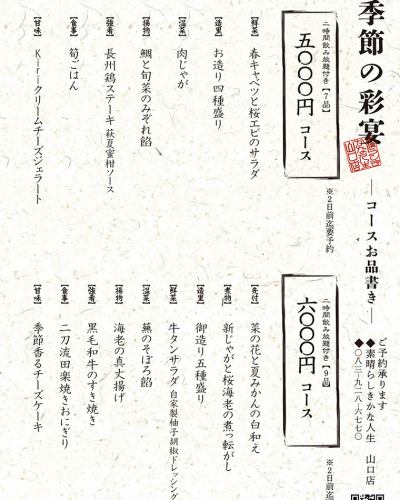 季節の彩宴
―コースお品書き―
ご予約承ります
◆素晴らしきかな人生 山口店
◆〇八三―九二八―六七七〇
二時間飲み放題付き【7品】
五〇〇〇円 コース
※2日前迄要予約
【鮮菜】 春キャベツと桜エビのサラダ
【造里】 お造り四種盛り
【温菜】 肉じゃが
【揚物】 鯛と旬菜のみぞれ餡
【強肴】 長州鶏ステーキ 萩夏蜜柑ソース
【食事】 筍ごはん
【甘味】 Kiriクリームチーズジェラート
二時間飲み放題付き【9品】
六〇〇〇円 コース
※2日前迄
【先付】 菜の花と夏みかんの白和え
【煮物】 新じゃがと桜海老の煮っ転がし
【造里】 御造り五種盛り
【鮮菜】 牛タンサラダ 自家製柚子胡椒ドレッシング
【温菜】 蕪のそぼろ餡
【揚物】 海老の真丈揚げ
【強肴】 黒毛和牛のすき焼き
【食事】 二刀流田楽焼きおにぎり
【甘味】 季節香るチーズケーキ